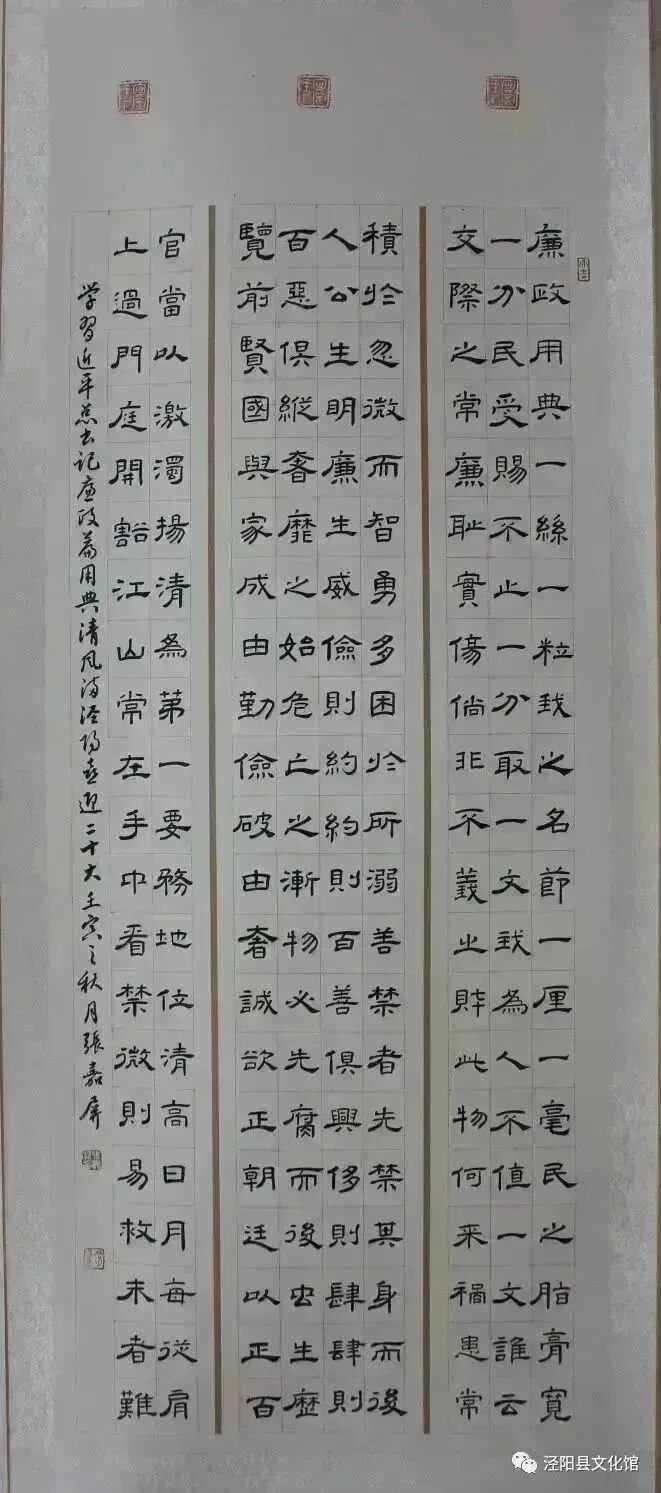 廉政用典一絲一粒我之名節一厘一毫民之脂膏寬
一分民受賜不止一分取一文我為人不值一文誰云
交際之常廉恥實傷倘非不義之財此物何来禍患常
積於忽微而智勇多困於所溺善禁者先禁其身而後
人公生明廉生威儉則約約則百善俱興侈則肆肆則
百惡俱縱奢靡之始危亡之漸物必先腐而後虫生歷
覽前賢國與家成由勤儉破由奢誠欲正朝廷以正百
官當以激濁揚清為第一要務地位清高日月每從肩
上過門庭開豁江山常在手中看禁微則易救末者難
学習近平总书记廉政篇用典清风满泾阳喜迎二十大壬寅之秋月張嘉屏
泾阳县文化馆